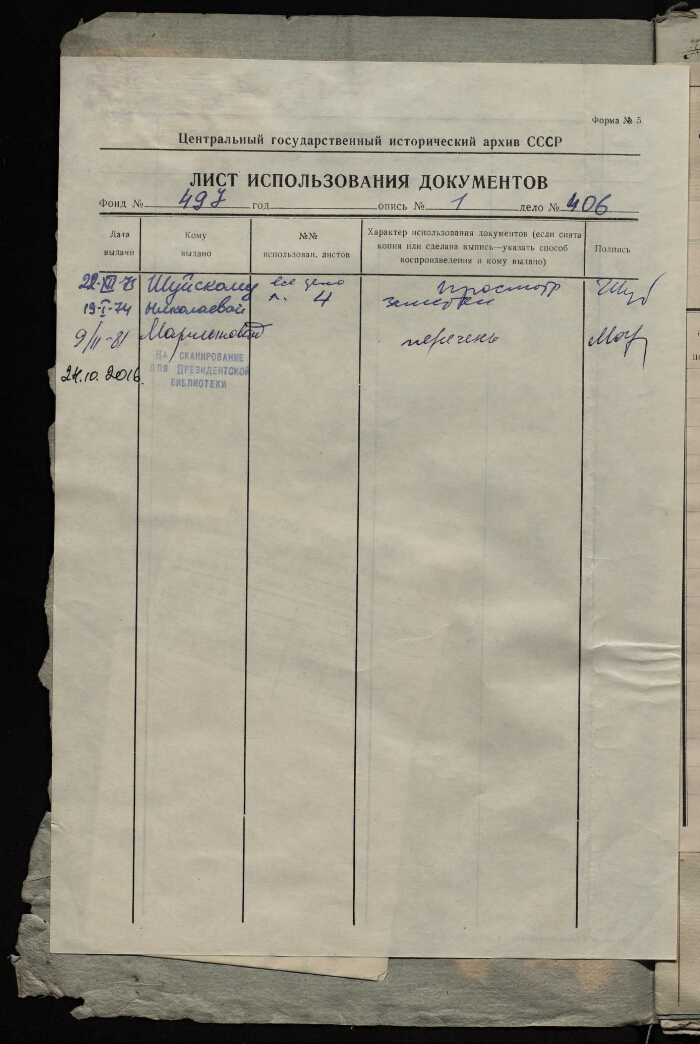 Форма № 5
Центральный государственный исторический архив СССР
ЛИСТ ИСПОЛЬЗОВАНИЯ ДОКУМЕНТОВ
Фонд № 497 год опись № 1 дело № 406
Дата выдачи
Кому выдано
№№ использован. листов
Характер использования документов (если снята
копия или сделана выпись—указать способ
воспроизведения и кому выдано)
Подпись
22-XII-73 Шуйскому все дело просмотр
19-I-74 Николаевой л. 4 заметки
9/II-81 перечень
24.10.2016.
НА СКАНИРОВАНИЕ
ДЛЯ ПРЕЗИДЕНТСКОЙ
БИБЛИОТЕКИ